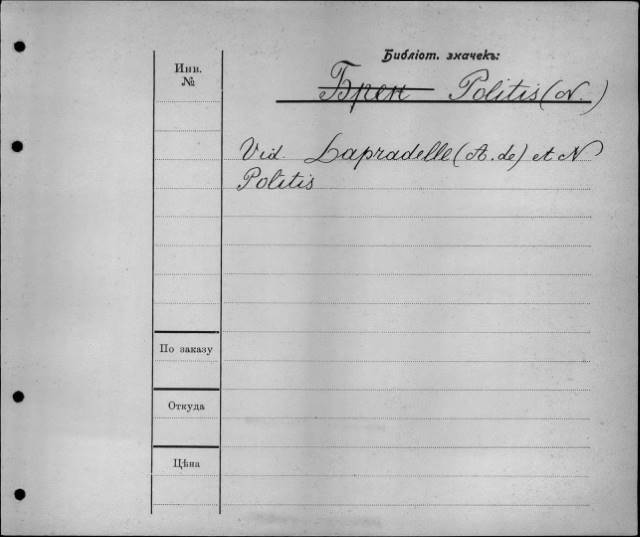 Библіот. значекъ:
Инв.
№
Брен Politis (N.)
Vid. Lapradelle (A. de) et N
Politis
По заказу
Откуда
Цѣна